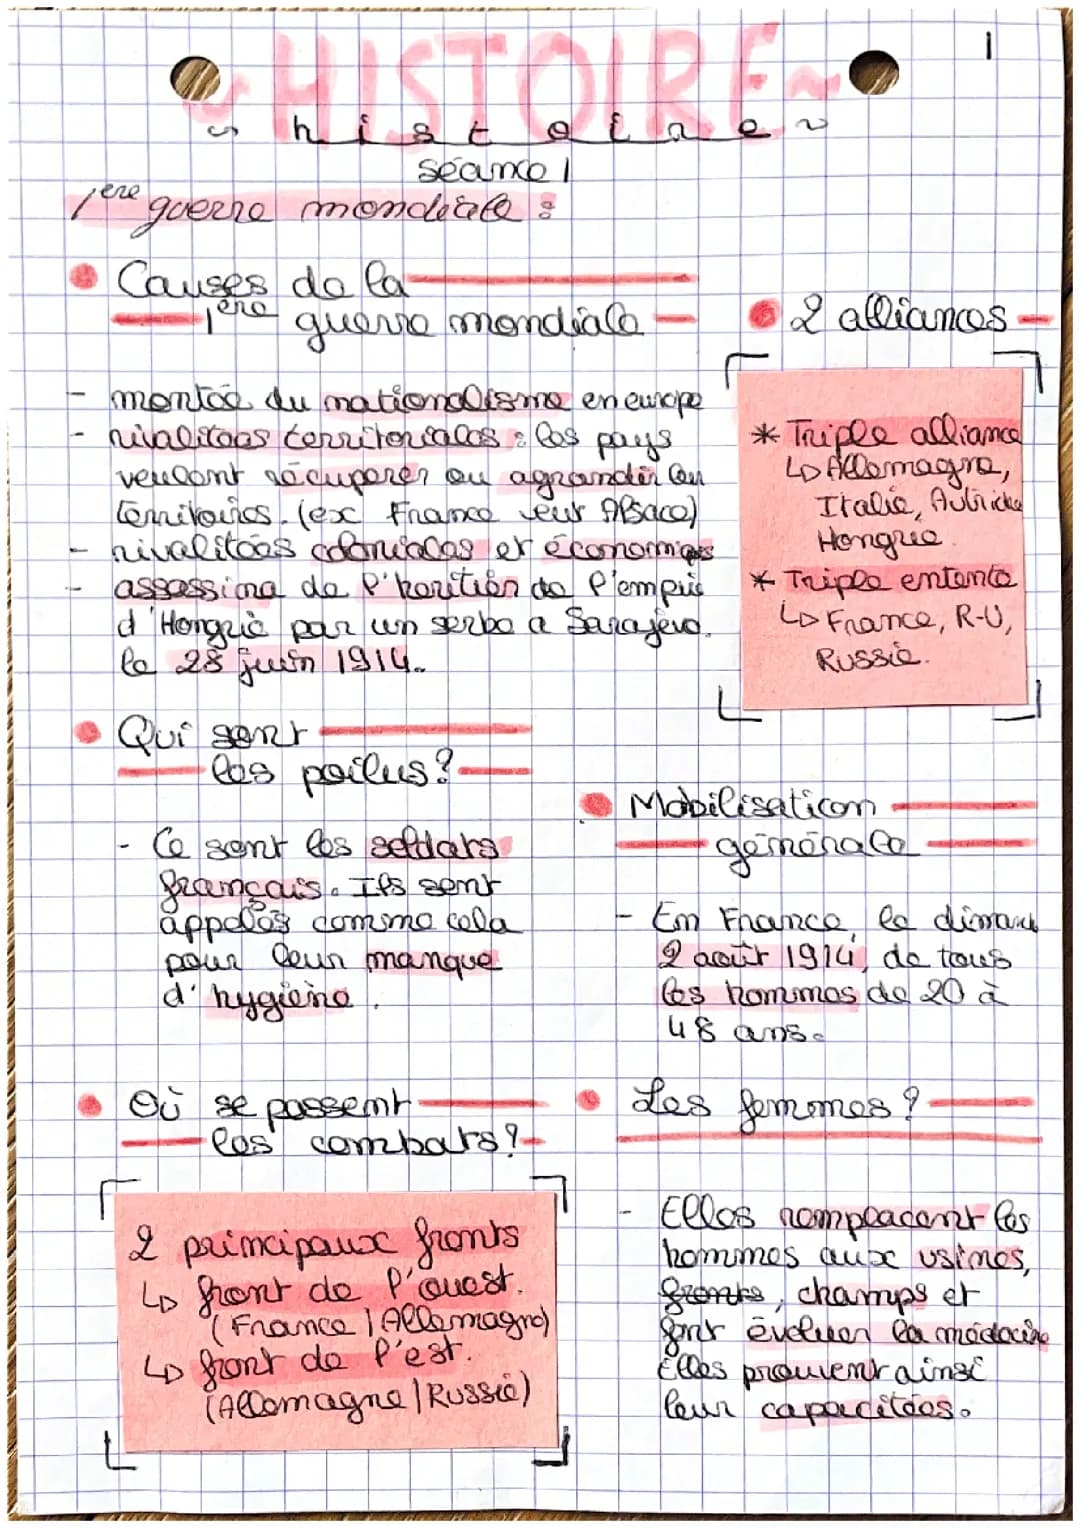 1
~HISTOIRE~
~ histoire ~
séance 1
1ère guerre mondiale :
Causes de la
1ère guerre mondiale
- montée du nationalisme en europe
- rivalitées territoriales : les pays
veulent récuperer ou agrandir leur
territoires. (ex France veut Alsace)
- rivalitées coloniales et économiques
- assassina de l'héritier de l'empire
d'Hongrie par un serbe a Sarajevo.
le 28 juin 1914.
2 alliances
* Triple alliance
↳ Allemagne,
Italie, Autriche
Hongrie.
* Triple entente
↳ France, R-U,
Russie.
Qui sont
les poilus ?
- Ce sont les soldats
français. Ils sont
appelés comme cela
pour leur manque
d'hygiène.
Mobilisation
générale
- En France, le dimanche
2 août 1914, de tous
les hommes de 20 à
48 ans.
Où se passent
les combats ?
2 principaux fronts
↳ front de l'ouest.
(France / Allemagne)
↳ front de l'est.
(Allemagne / Russie)
Les femmes ?
- Elles remplacent les
hommes aux usines,
fronts, champs et
font évoluer la médecine
Elles prouvent ainsi
leur capacitées.